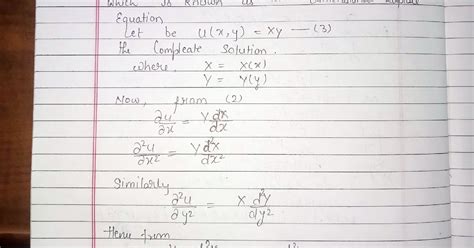 which is known as
Equation
Let be u(x,y) = XY — (3)
the Compleate Solution.
where. X = X(x)
Y = Y(y)
Now, from (2)
∂u/∂x = Y dX/dx
∂²u/∂x² = Y d²X/dx²
Similarly
∂²u/∂y² = X d²Y/dy²
Hence from